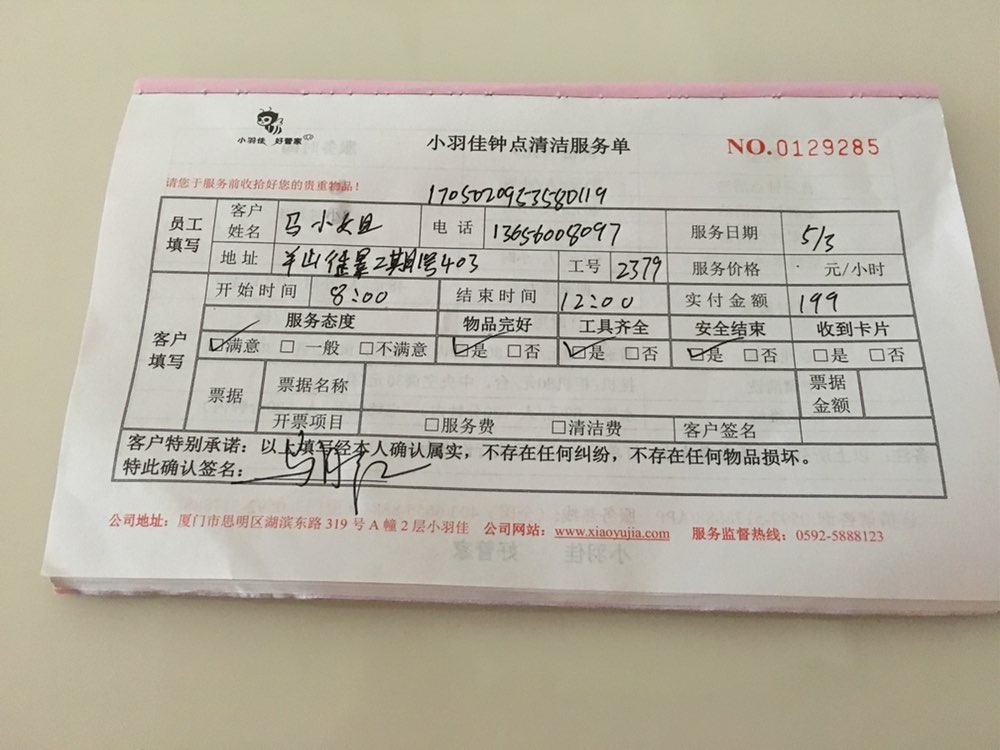 小羽佳 好管家
小羽佳钟点清洁服务单
NO.0129285
请您于服务前收拾好您的贵重物品！
1705020953580119
员工填写 客户姓名 马小姐 电话 13656008097 服务日期 5/3
地址 半山御景二期1号403 工号 2379 服务价格 元/小时
开始时间 8:00 结束时间 12:00 实付金额 199
客户填写 服务态度 物品完好 工具齐全 安全结束 收到卡片
☑满意 □一般 □不满意 ☑是 □否 ☑是 □否 ☑是 □否 □是 □否
票据 票据名称 票据金额
开票项目 □服务费 □清洁费 客户签名
客户特别承诺：以上填写经本人确认属实，不存在任何纠纷，不存在任何物品损坏。
特此确认签名：
公司地址：厦门市思明区湖滨东路 319 号 A 幢 2 层小羽佳 公司网站：www.xiaoyujia.com 服务监督热线：0592-5888123